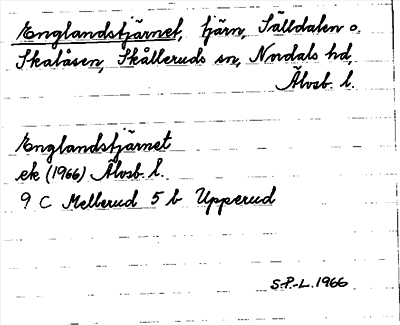 Englandstjärnet, tjärn, Sälldalen o.
Skalåsen, Skålleruds sn, Nordals hd,
Älvsb. l.
Englandstjärnet
ek (1966) Älvsb. l.
9 C Mellerud 5 b Upperud
S-P-L. 1966